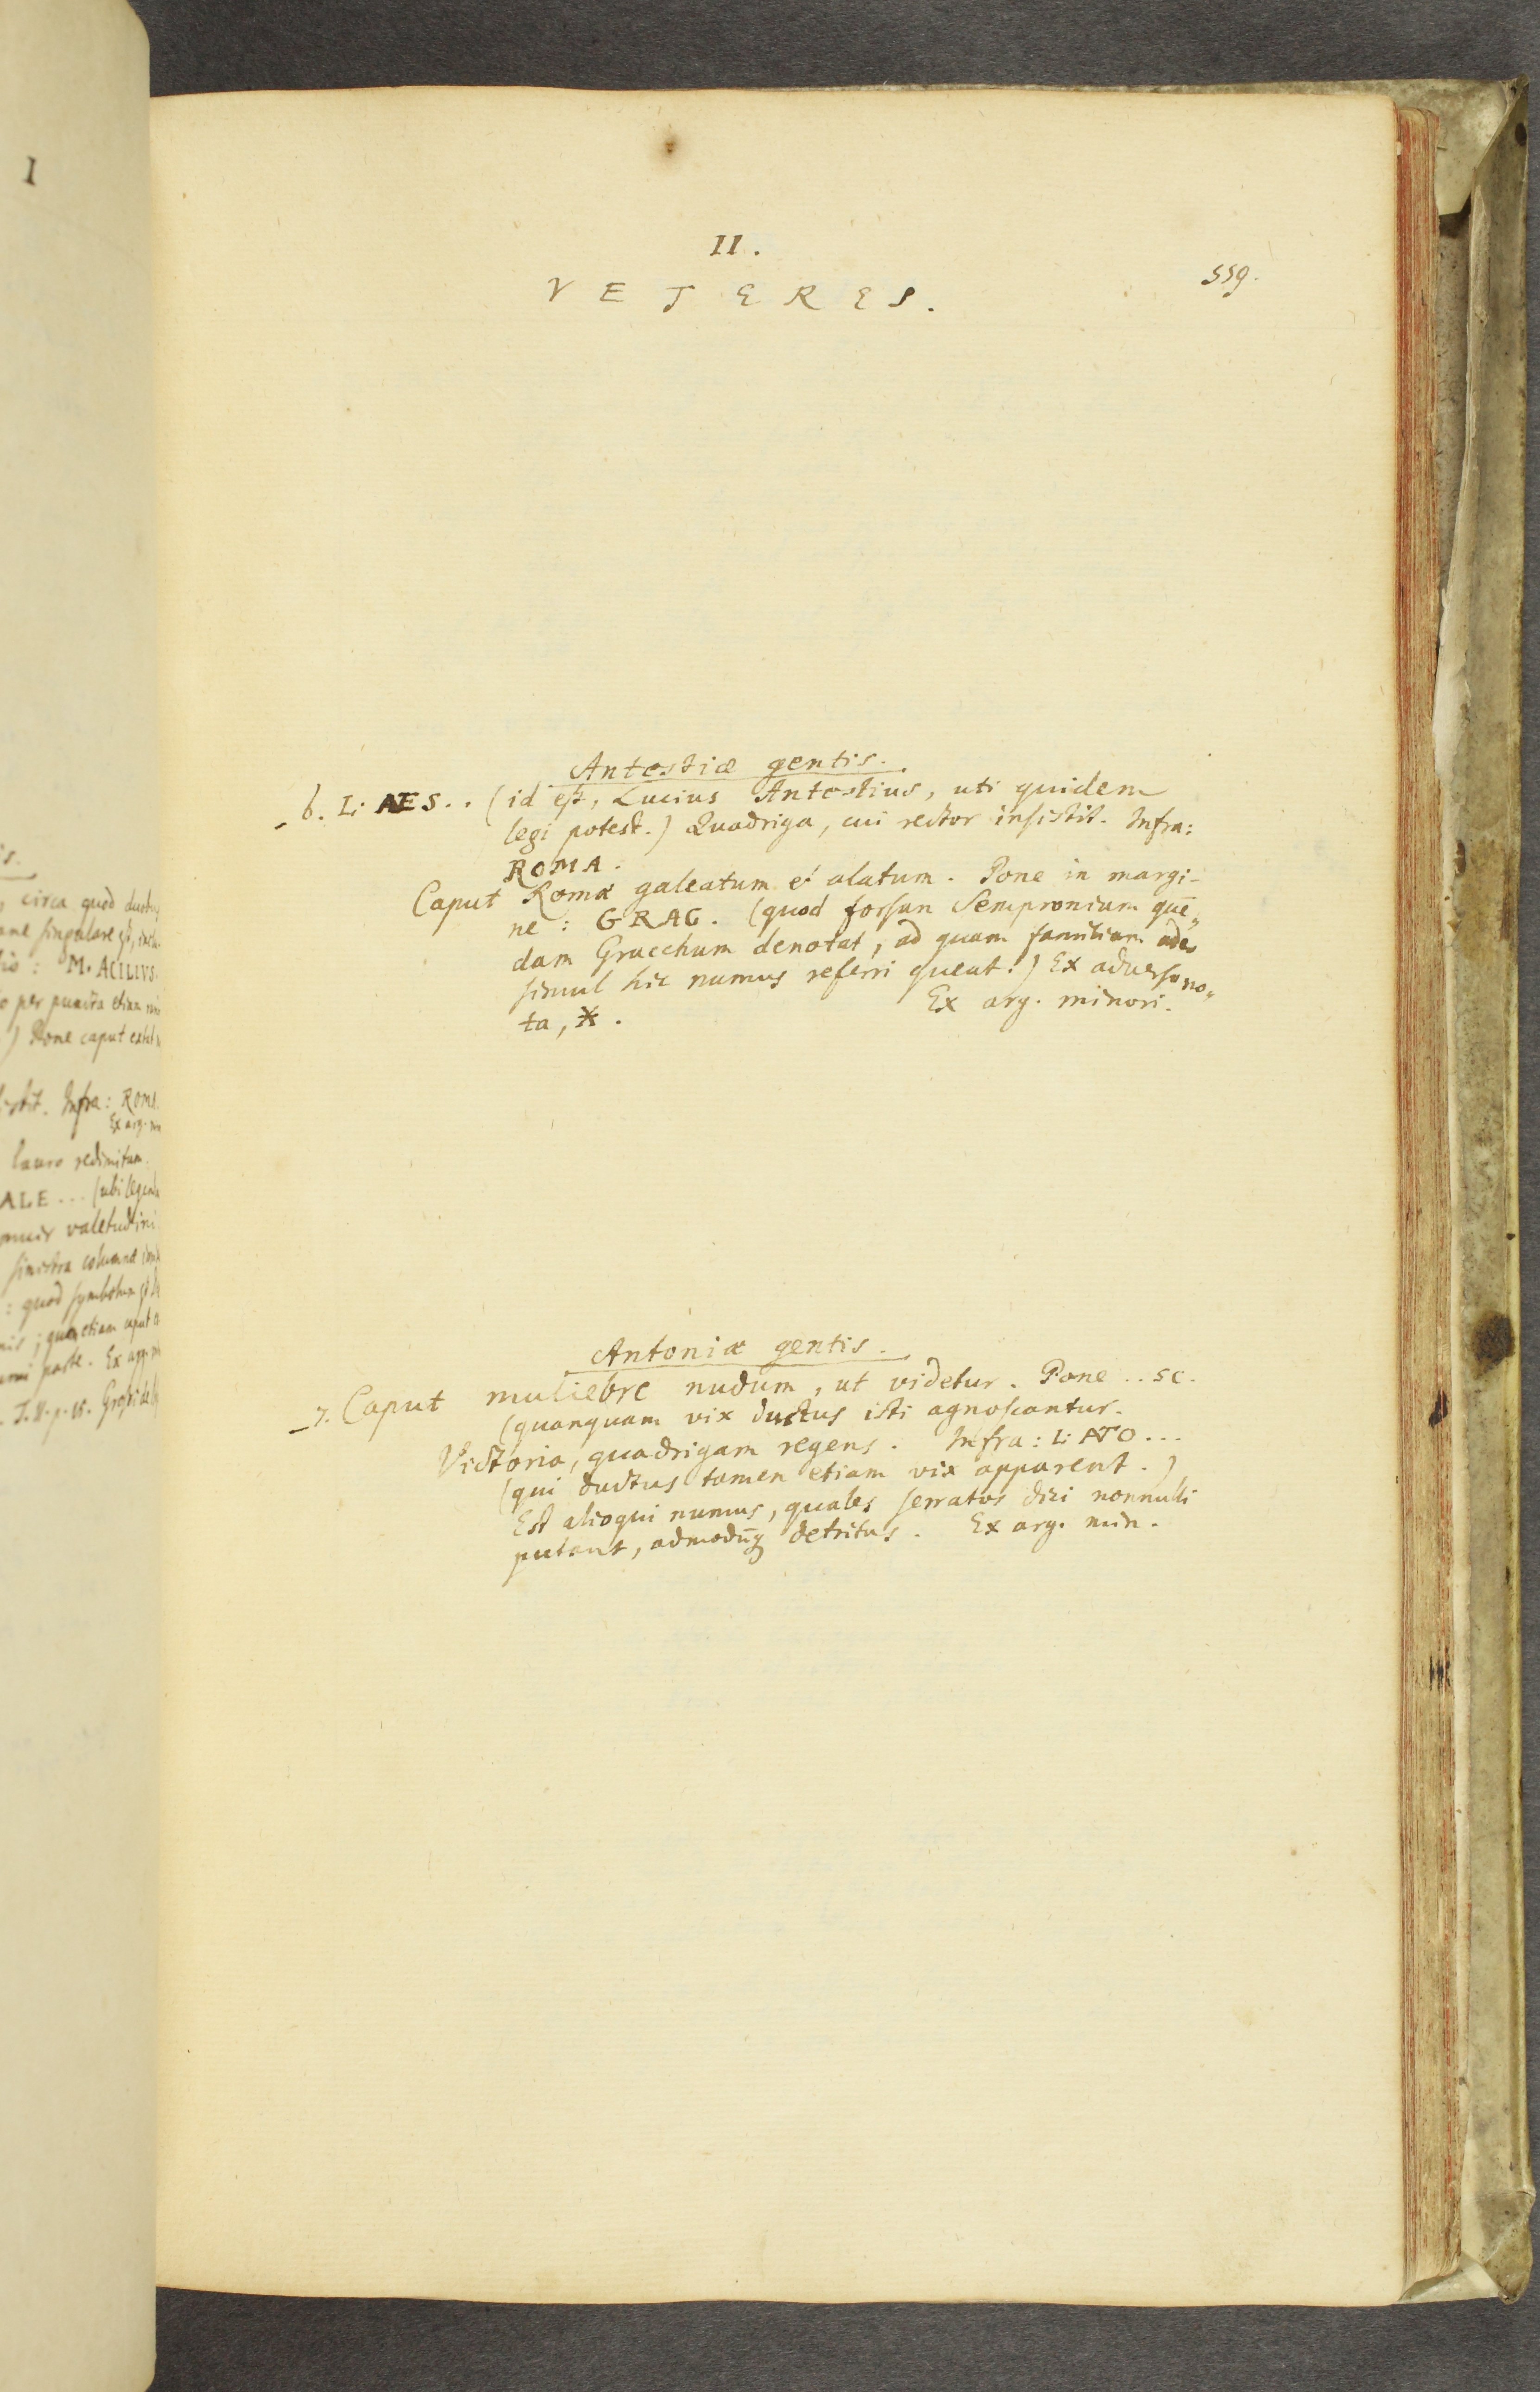 I
II.
VETERES.
559.
Antestiæ gentis.
6. L. AES.. (id est, Lucius Antestius, uti quidem
legi potest.) Quadriga, cui rector insistit. Infra:
ROMA.
Caput Romæ galeatum et alatum. Pone in margi-
ne: GRAC. (quod forsan Sempronium quē-
dam Gracchum denotat, ad quam familiam adeo
simul hic numus referri queat.) Ex adverso no-
ta, X.
Ex arg. minori.
Antoniæ gentis.
7. Caput muliebre nudum, ut videtur. Pone ..SC.
(quanquam vix ductus isti agnoscantur.
Victoria, quadrigam regens. Infra: L. ATO...
(qui ductus tamen etiam vix apparent.)
Est alioqui numus, quales serratos dici nonnulli
putant, admodūq detritus. Ex arg. min.
circa quod
singulare
M. ACILIVS.
per puncta etiam
) Pone caput
Infra: ROMA.
Ex arg.
lauro redimitum.
ALE... (ubi
valetudini
sinistra columnæ
: quod symbolum
; quæ etiam caput
parte. Ex arg.